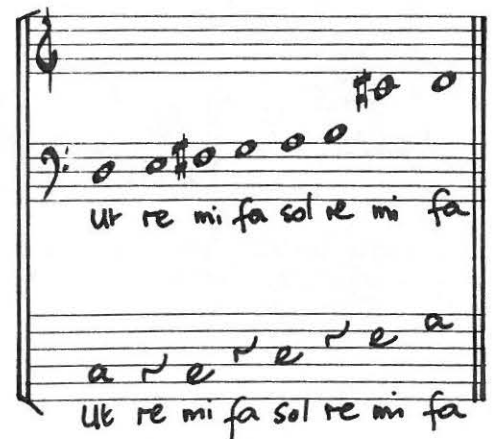 ut re mi fa sol re mi fa
a r e r e r e a
Ut re mi fa sol re mi fa